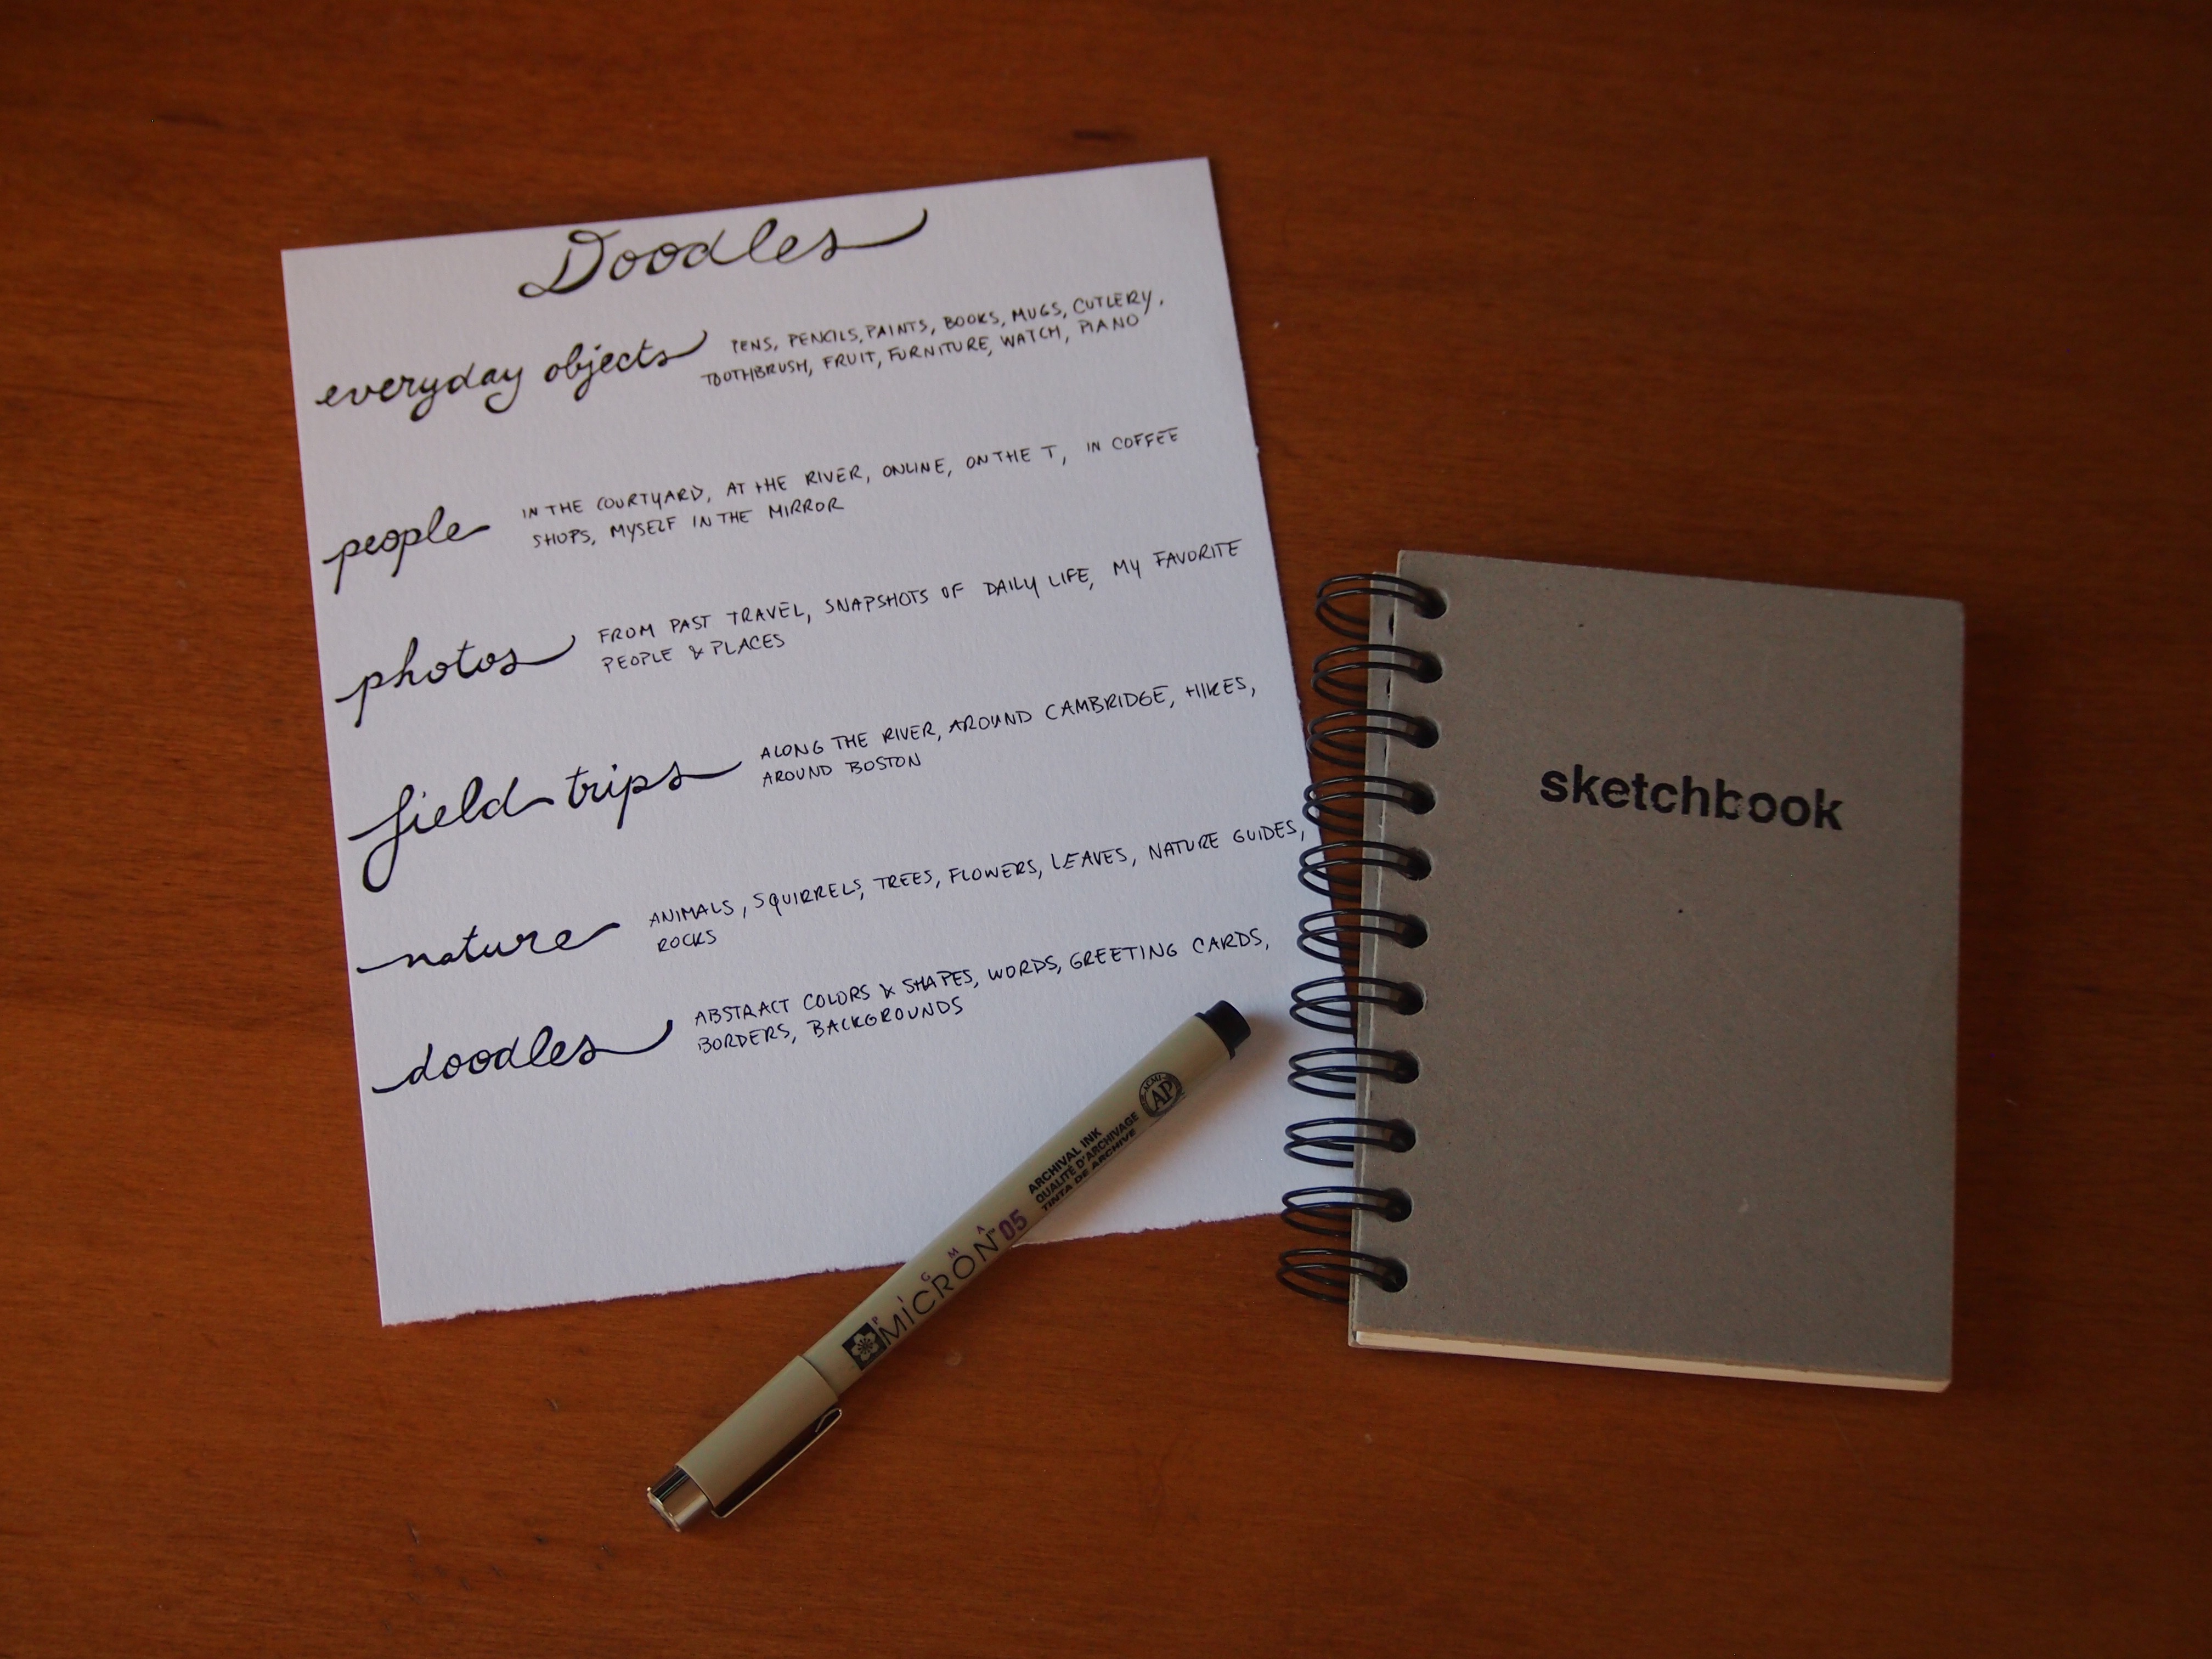 Doodles
everyday objects
PENS, PENCILS, PAINTS, BOOKS, MUGS, CUTLERY,
TOOTHBRUSH, FRUIT, FURNITURE, WATCH, PIANO
people
IN THE COURTYARD, AT THE RIVER, ONLINE, ON THE T, IN COFFEE
SHOPS, MYSELF IN THE MIRROR
photos
FROM PAST TRAVEL, SNAPSHOTS OF DAILY LIFE, MY FAVORITE
PEOPLE & PLACES
field trips
ALONG THE RIVER, AROUND CAMBRIDGE, HIKES,
AROUND BOSTON
nature
ANIMALS, SQUIRRELS, TREES, FLOWERS, LEAVES, NATURE GUIDES,
ROCKS
doodles
ABSTRACT COLORS & SHAPES, WORDS, GREETING CARDS,
BORDERS, BACKGROUNDS
PIGMA
MICRON™ 05
ARCHIVAL INK
QUALITÉ D'ARCHIVAGE
TINTA DE ARCHIVE
AP
sketchbook